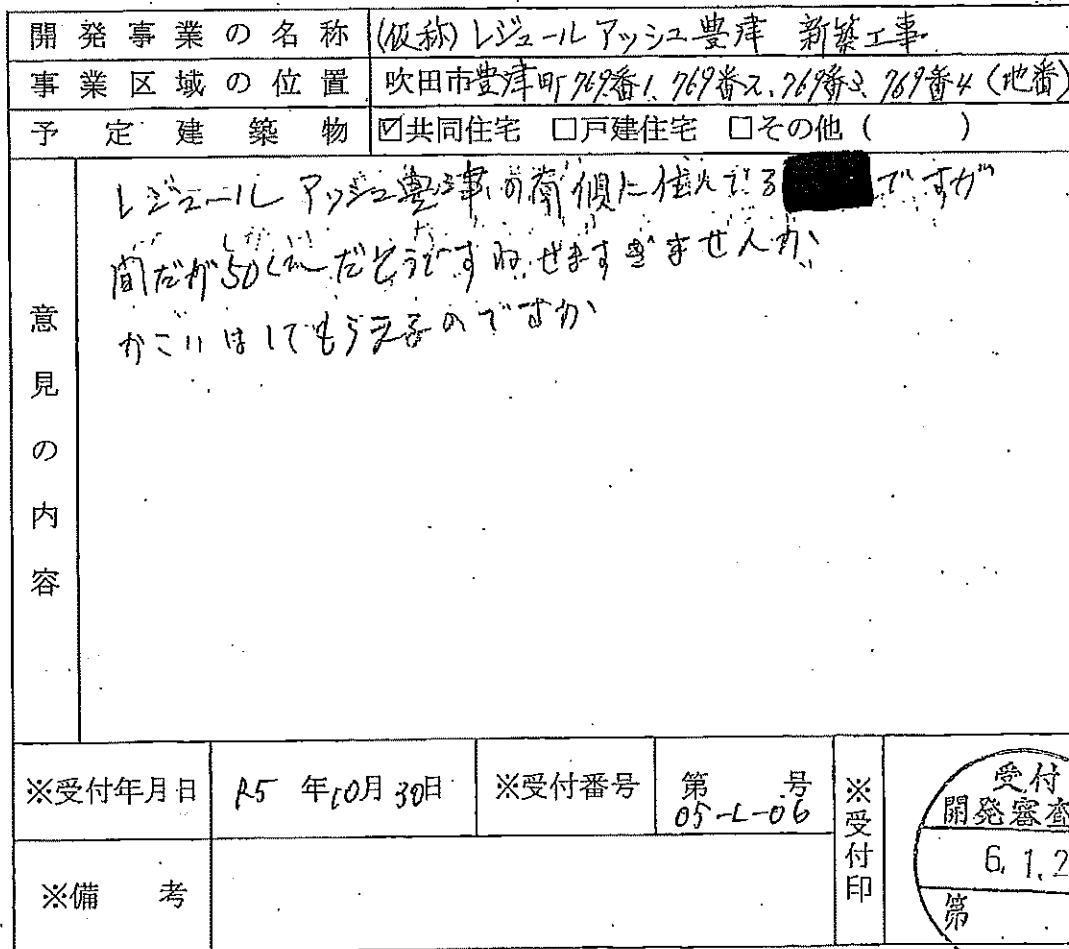 開発事業の名称 (仮称)レジュールアッシュ豊津 新築工事
事業区域の位置 吹田市豊津町769番1、769番2、769番3、769番4(地番)
予定建築物 ☑共同住宅 □戸建住宅 □その他( )
意見の内容
レジュールアッシュ豊津の南側に住んでるですが
間だが50だそうですね、せますぎませんか、
かこいはしてもらえるのですか
※受付年月日 R5年10月30日 ※受付番号 第号 05-L-06 ※受付印
受付
開発審査
6.1.2
第
※備考